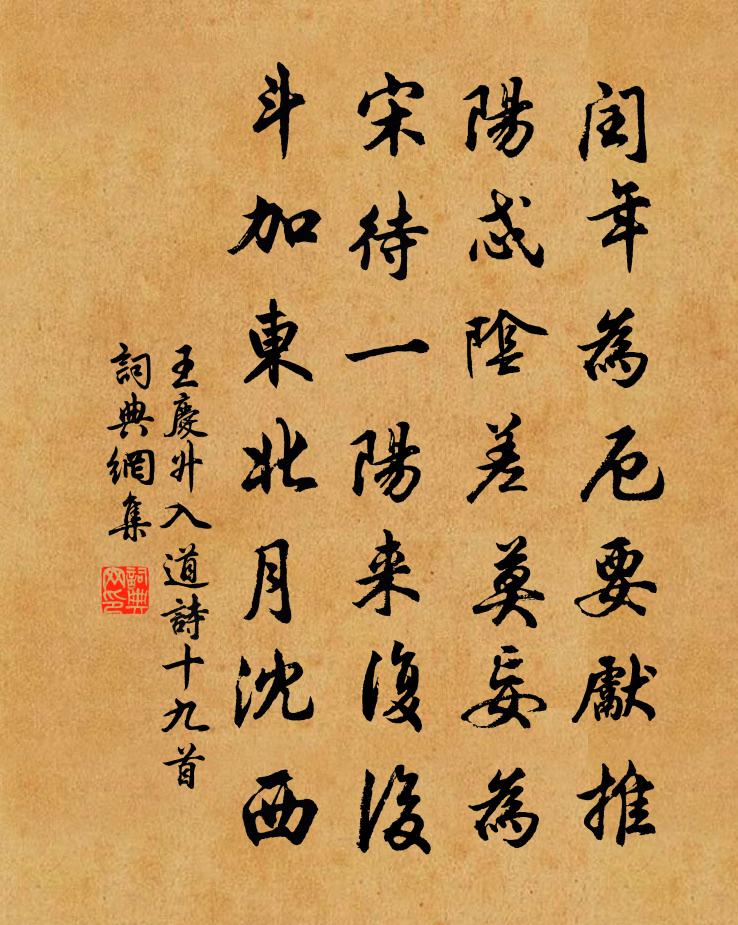 閏年為厄要獻推
陽忒陰差莫妄為
宋待一陽来復後
斗加東北月沈西
王慶升入道詩十九首
詞典網集
詞典网印